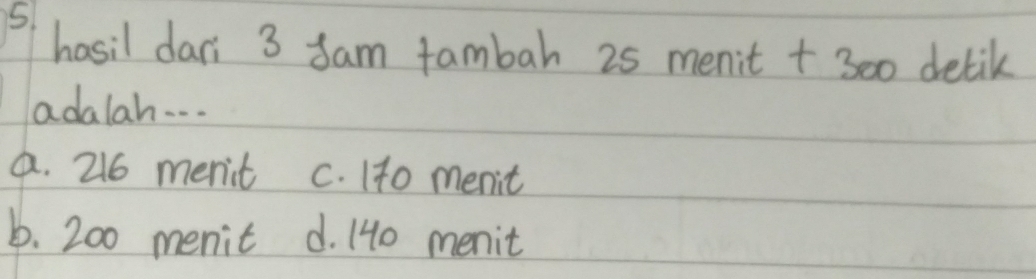 5. hasil dari 3 Jam tambah 25 menit + 300 detik
adalah...
a. 216 menit c. 170 menit
b. 200 menit d. 140 menit